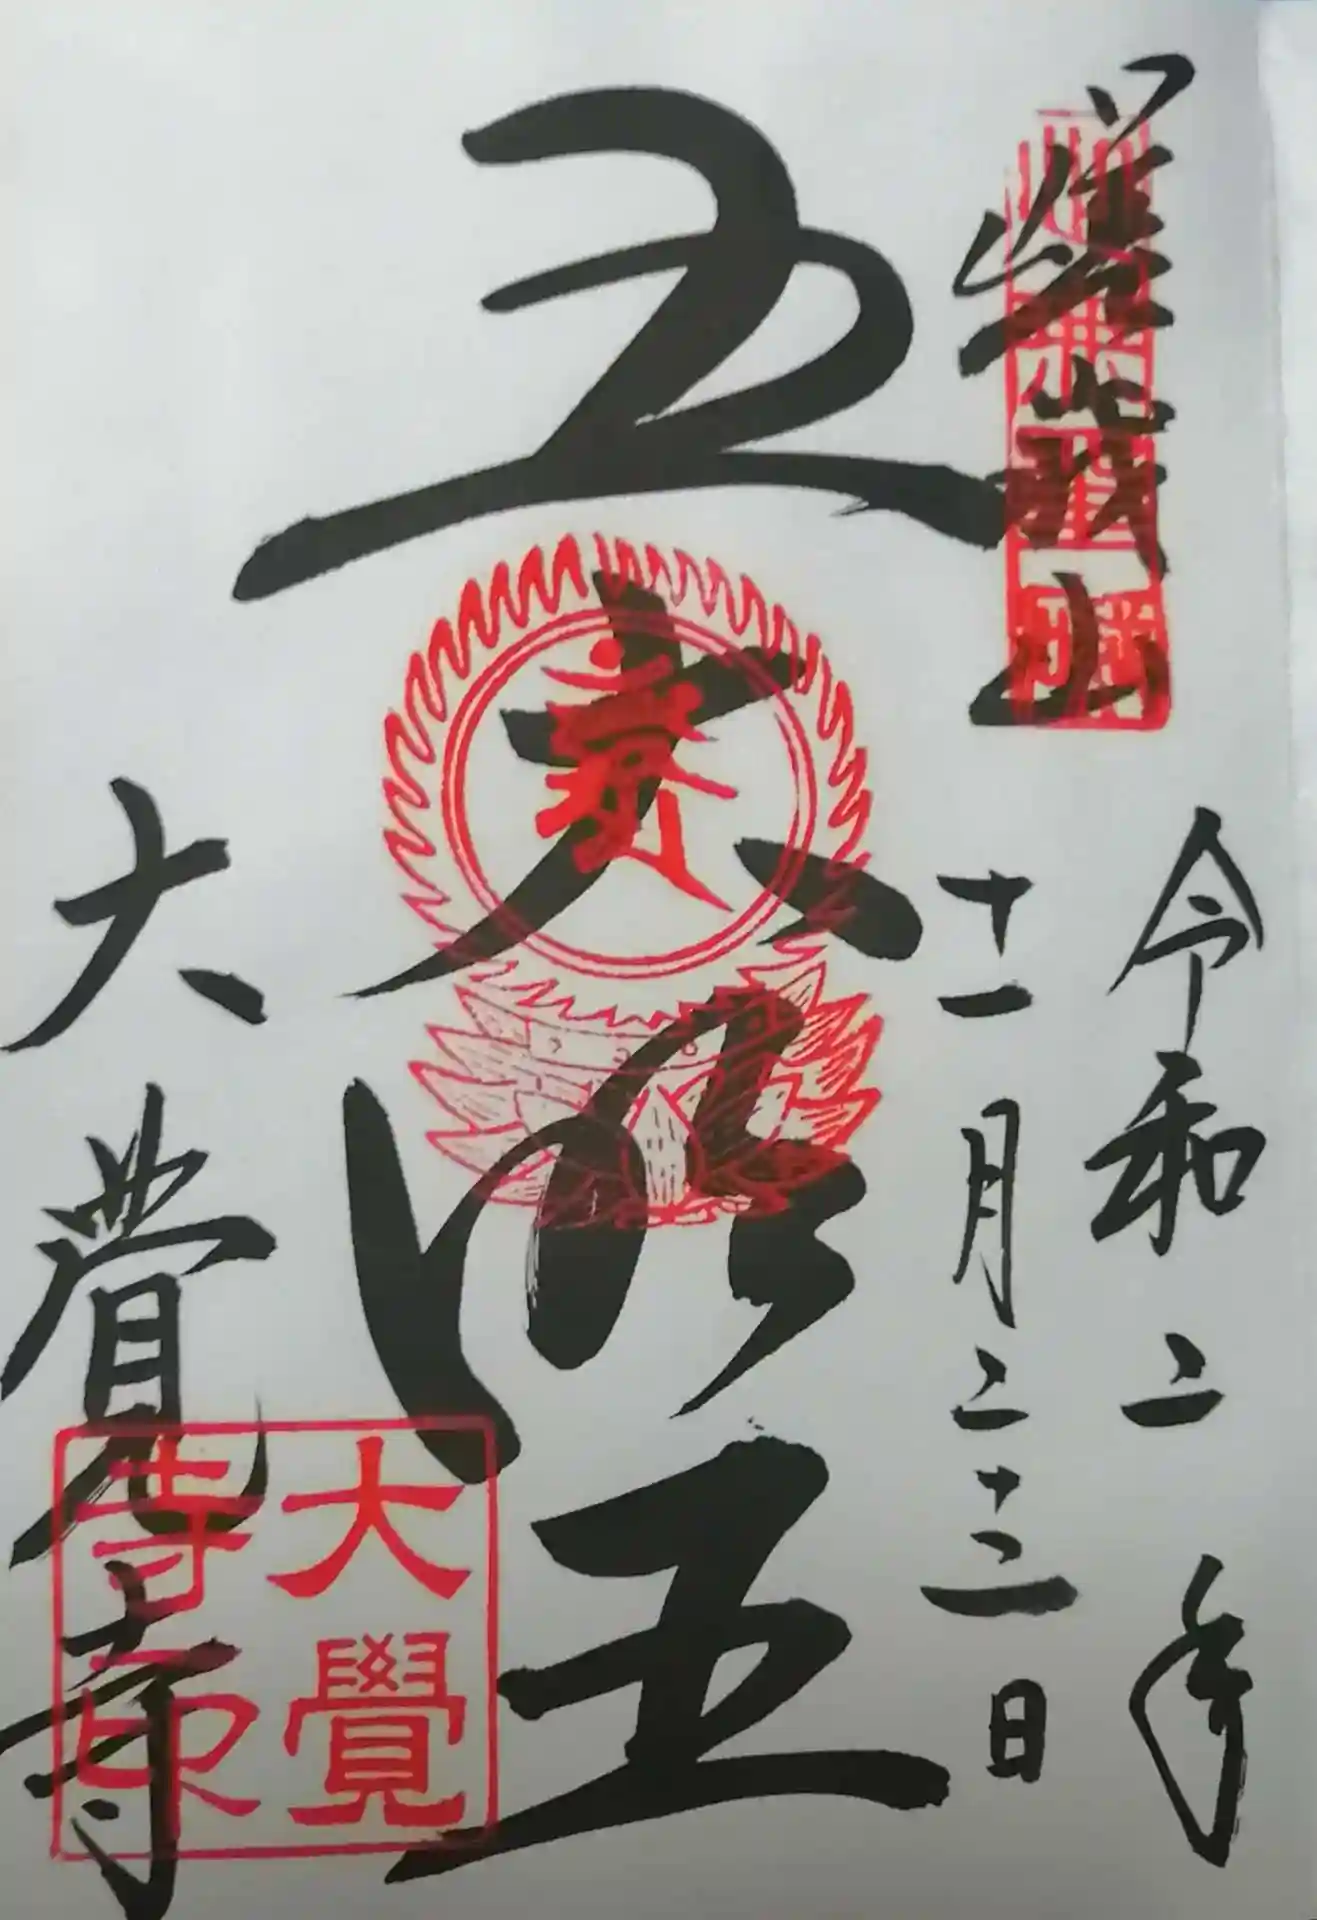 嵯峨山
令和二年
十一月二十二日
五大明王
大覚寺
大覺
寺印